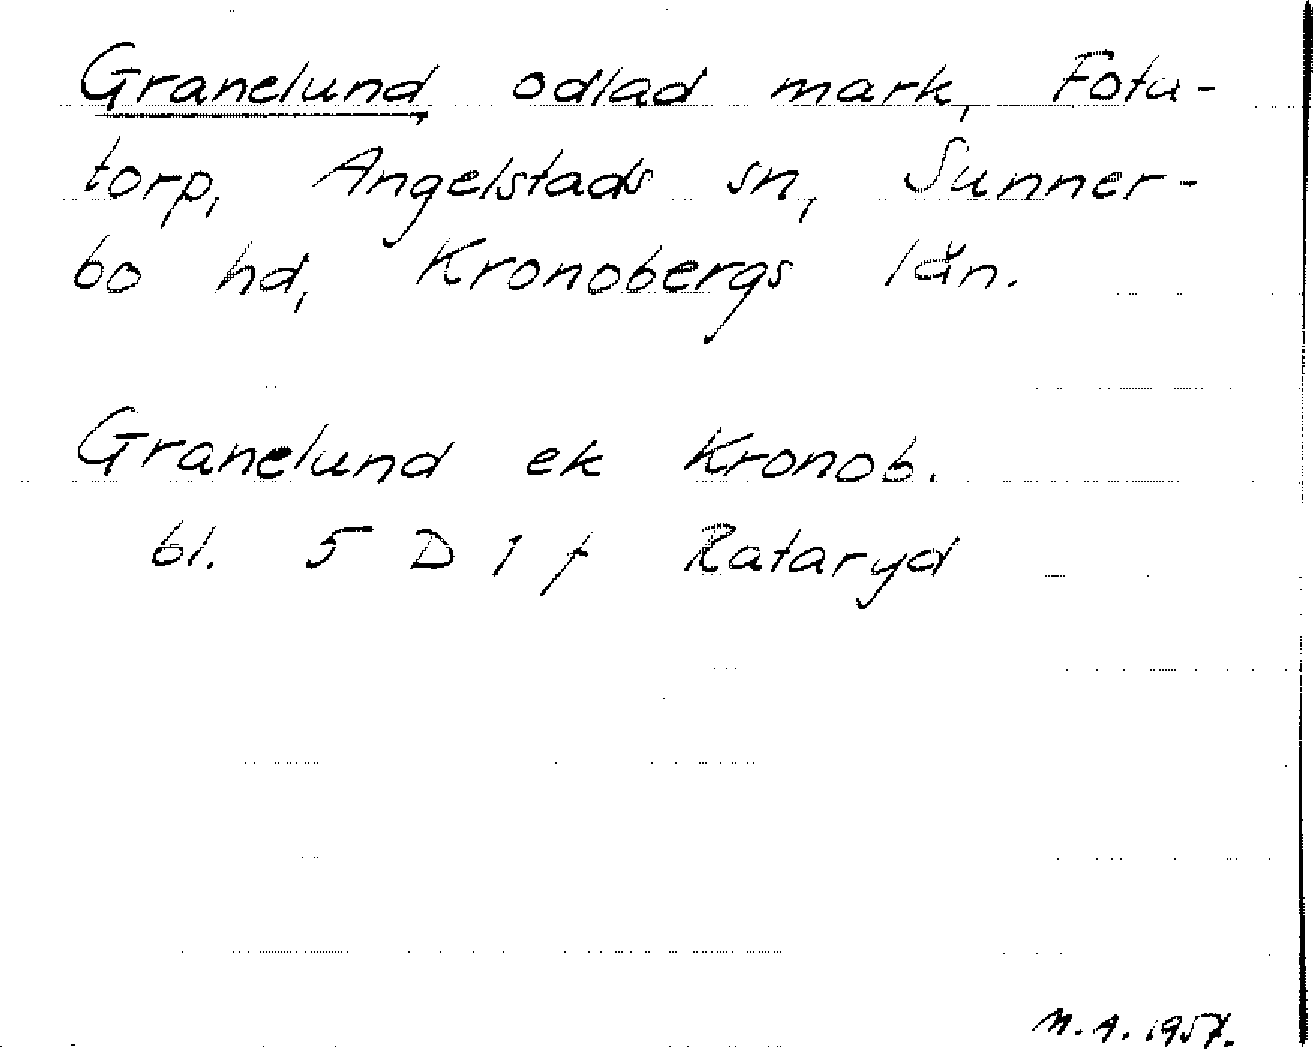 Granelund odlad mark, Fotu-
torp, Angelstads sn, Sunner-
bo hd, Kronobergs län.
Granelund ek Kronob.
bl. 5 D 1 f Rataryd
M.A. 1957.